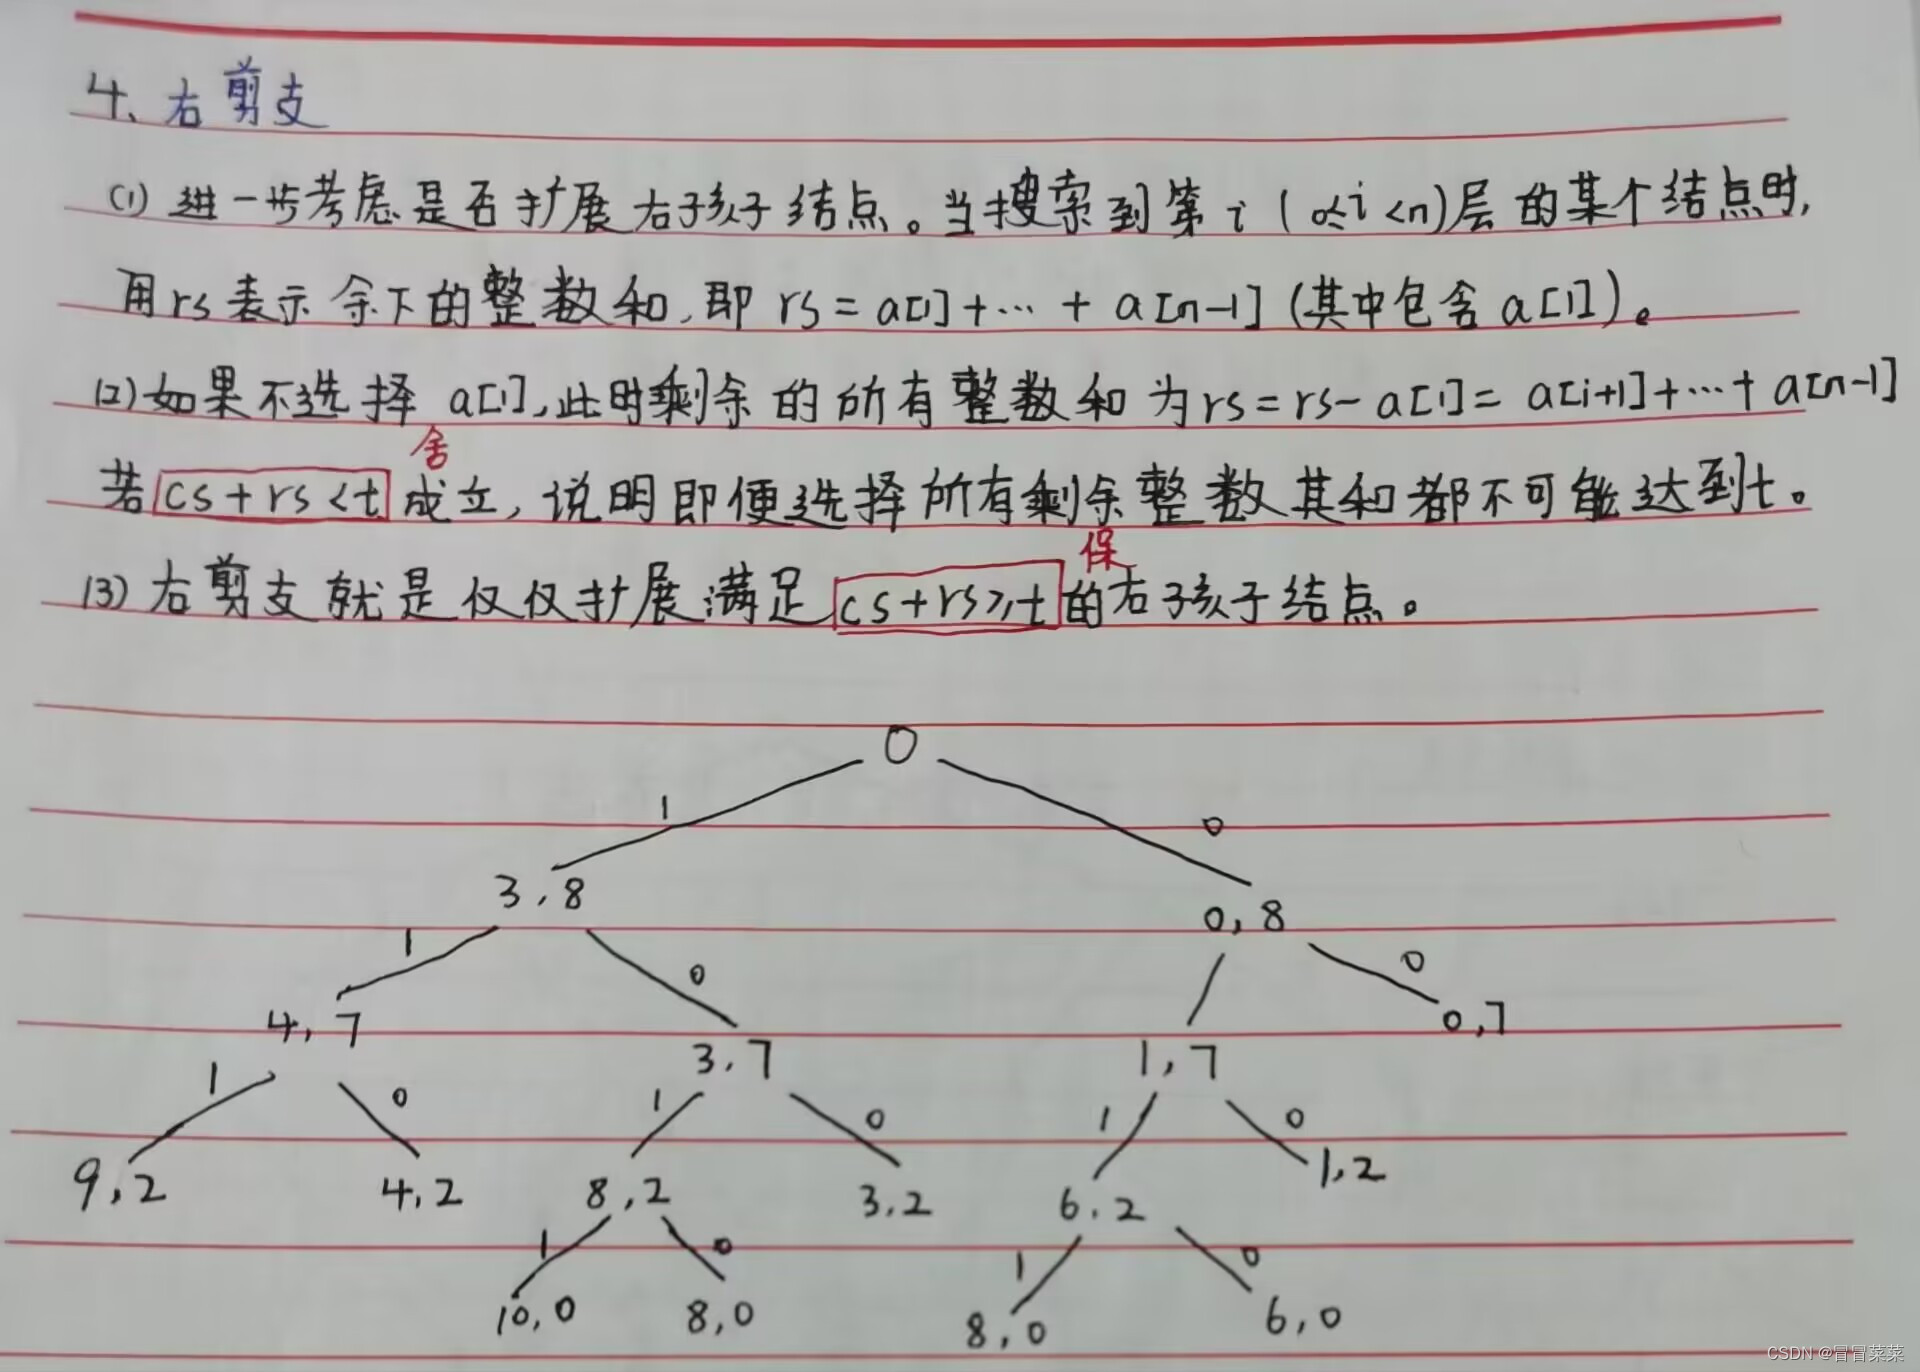 4、右剪支
(1) 进一步考虑是否扩展右孩子结点。当搜索到第i(0≤i<n)层的某个结点时,
用rs表示余下的整数和,即 rs = a[i]+…+ a[n-1] (其中包含a[i])。
(2) 如果不选择 a[i],此时剩余的所有整数和为rs=rs-a[i]= a[i+1]+…+ a[n-1]
舍
若 cs+rs<t 成立,说明即便选择所有剩余整数其和都不可能达到t。
保
(3) 右剪支就是仅仅扩展满足 cs+rs≥t 的右孩子结点。
0
1 0
3,8 0,8
1 0 0
4,7 3,7 1,7 0,7
1 0 1 0 1 0
9,2 4,2 8,2 3,2 6,2 1,2
1 0 1 0
10,0 8,0 8,0 6,0
CSDN @冒冒菜菜